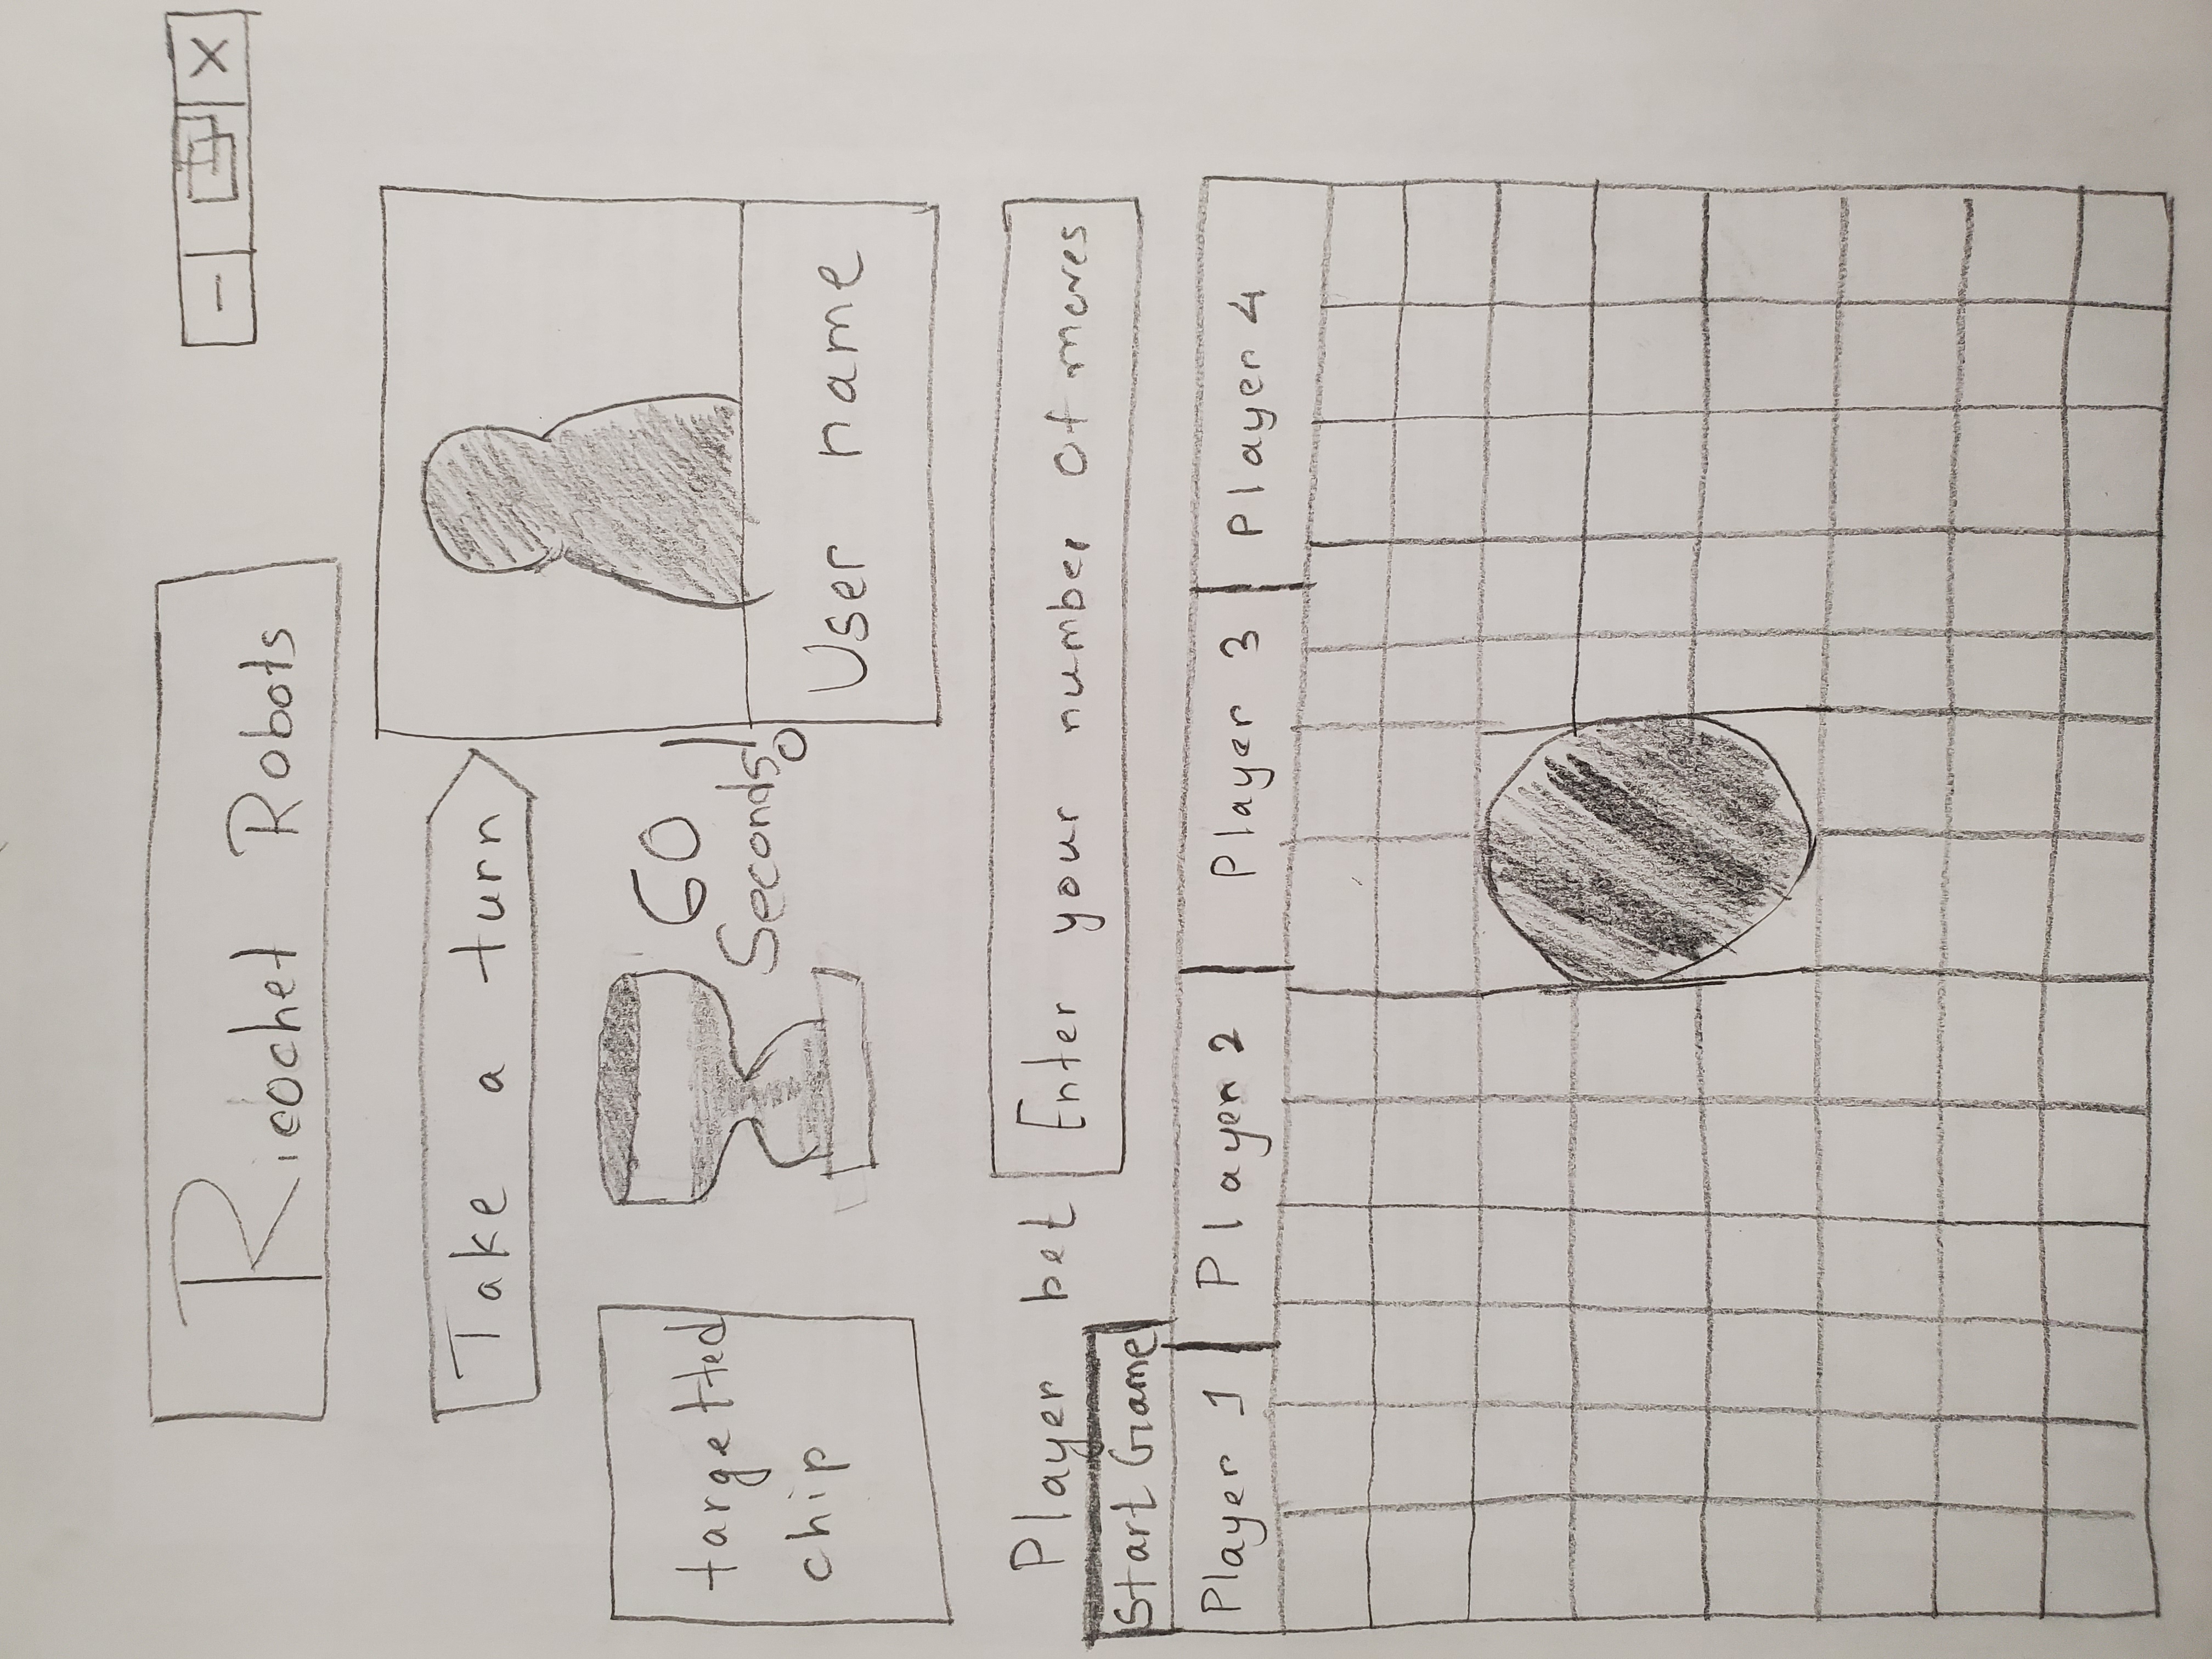 Ricochet Robots
Take a turn
targetted
chip
60
Seconds!
User name
Player bet
Enter your number of moves
Start Game
Player 1
Player 2
Player 3
Player 4